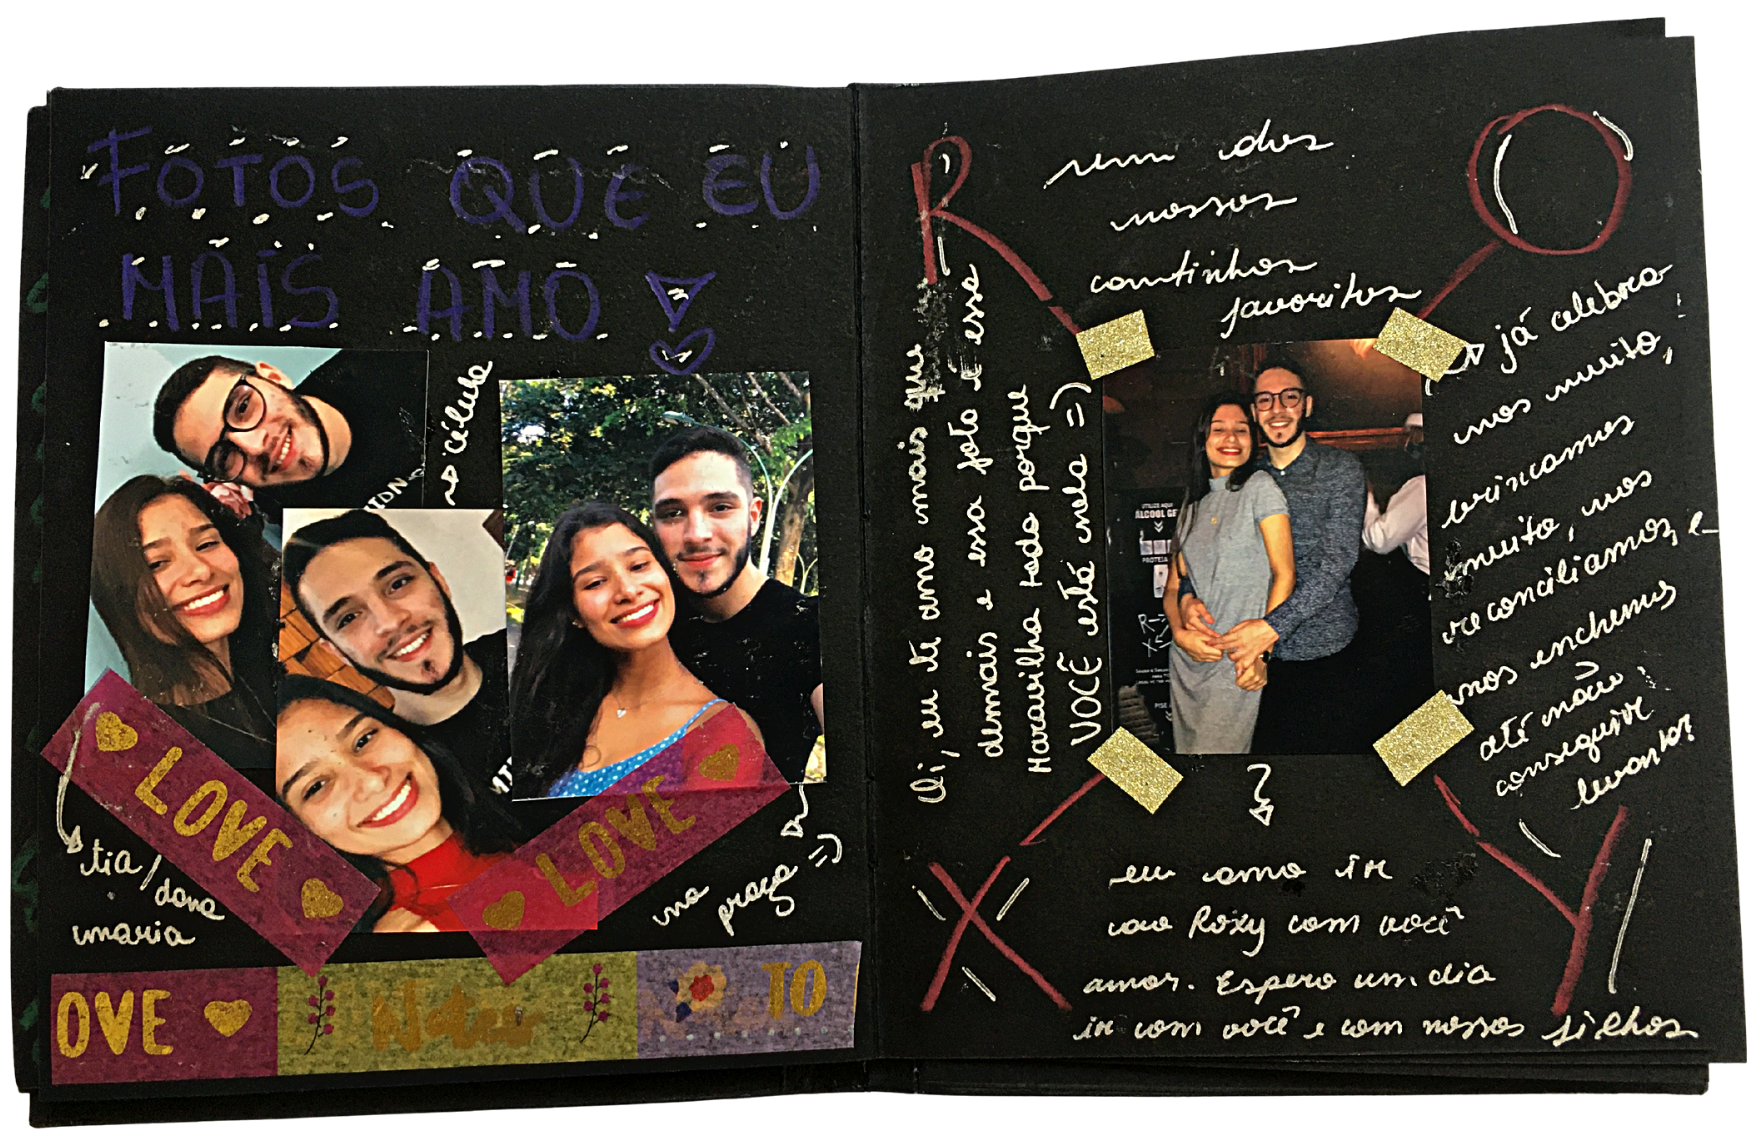 FOTOS QUE EU
MAIS AMO
célula
LOVE
LOVE
tia/dona
maria
na
praça =)
OVE
Notes
TO
R
O
X
Y
um dos
nossos
cantinhos
favoritos
Oi, eu te amo mais que
demais e essa foto é essa
Maravilha toda porque
VOCÊ está nela =)
UTILIZE AQUI
ÁLCOOL GE
já celebra
mos muito,
brincamos
muito, nos
reconciliamos, e
nos enchemos
até não
conseguir
levantar
eu amo ir
ao Roxy com você
amor. Espero um dia
ir com você e com nossos filhos